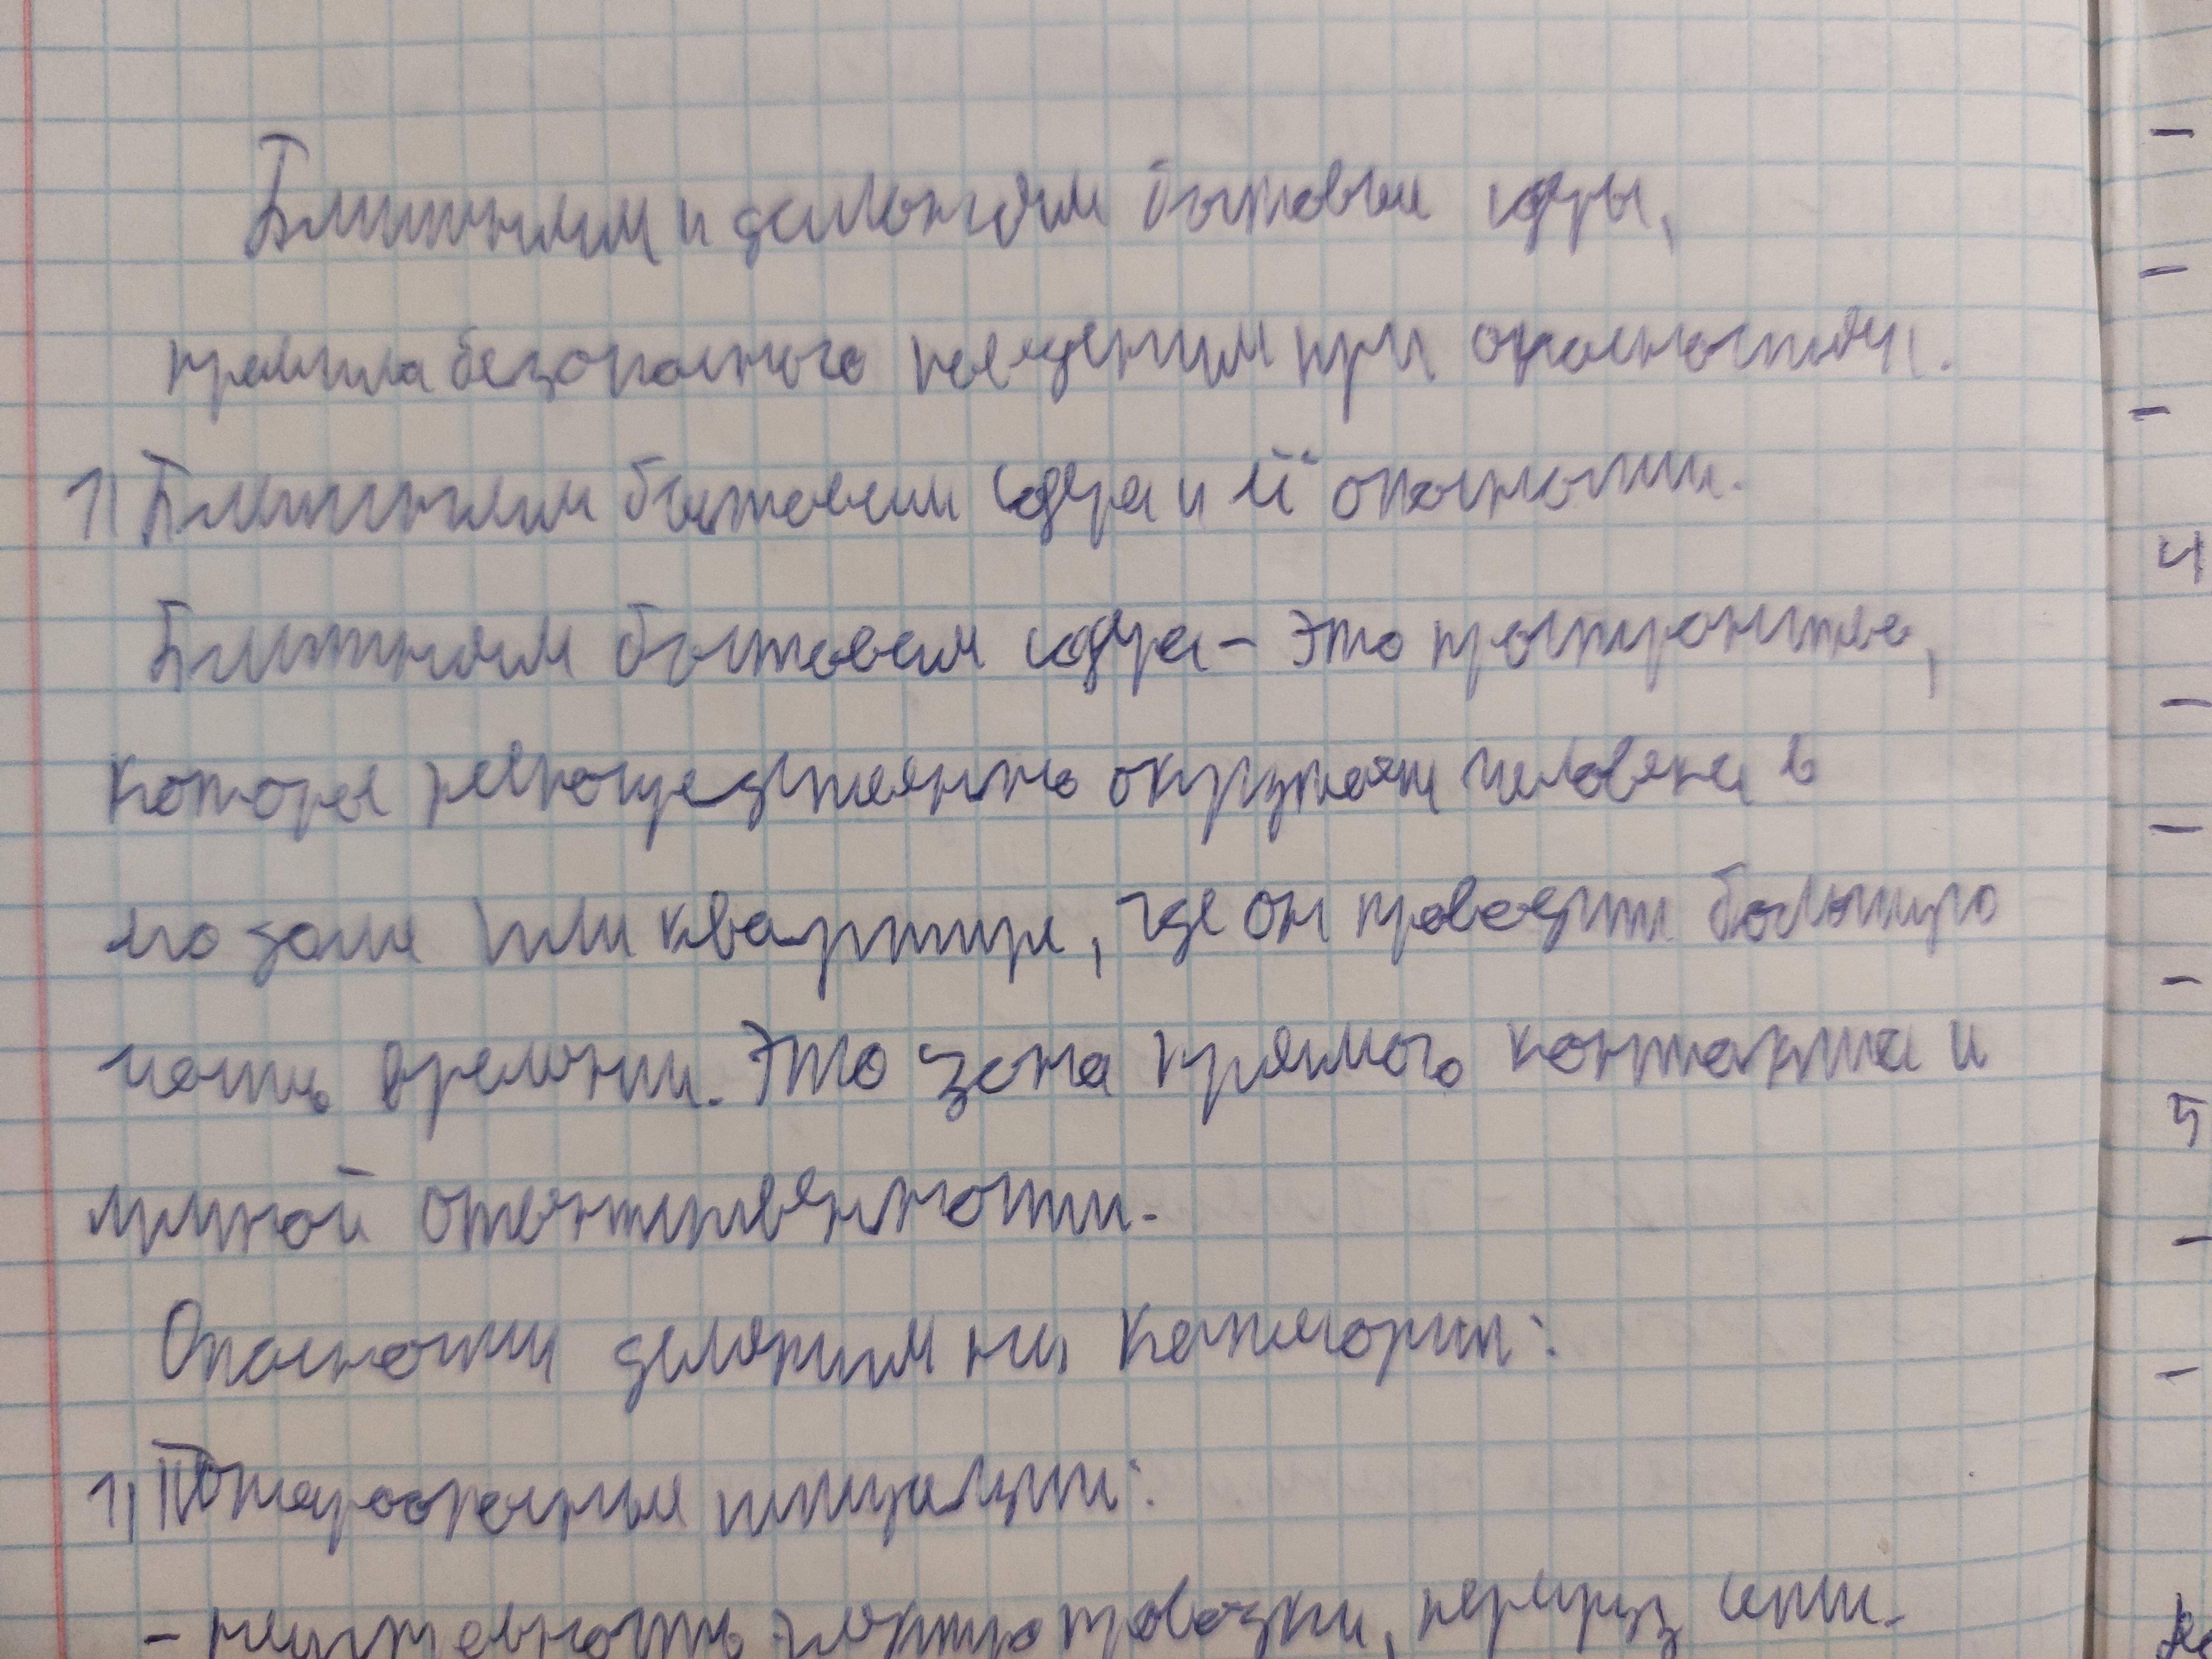 Ближняя и дальняя бытовые среды,
правила безопасного поведения при опасностях.
1) Ближняя бытовая среда и её опасности.
Ближняя бытовая среда - это пространство,
которое непосредственно окружает человека в
его доме или квартире, где он проводит большую
часть времени. Это зона прямого контакта и
личной ответственности.
Опасности делятся на категории:
1) Пожароопасные ситуации:
- неисправность электропроводки, перегруз сети.
4
5